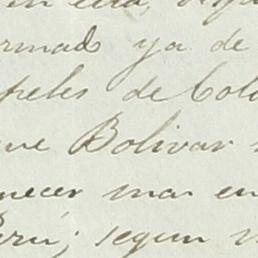 en ella,
ormado ya de
peles de Colo
ue Bolivar
necer mas en
Perú; segun